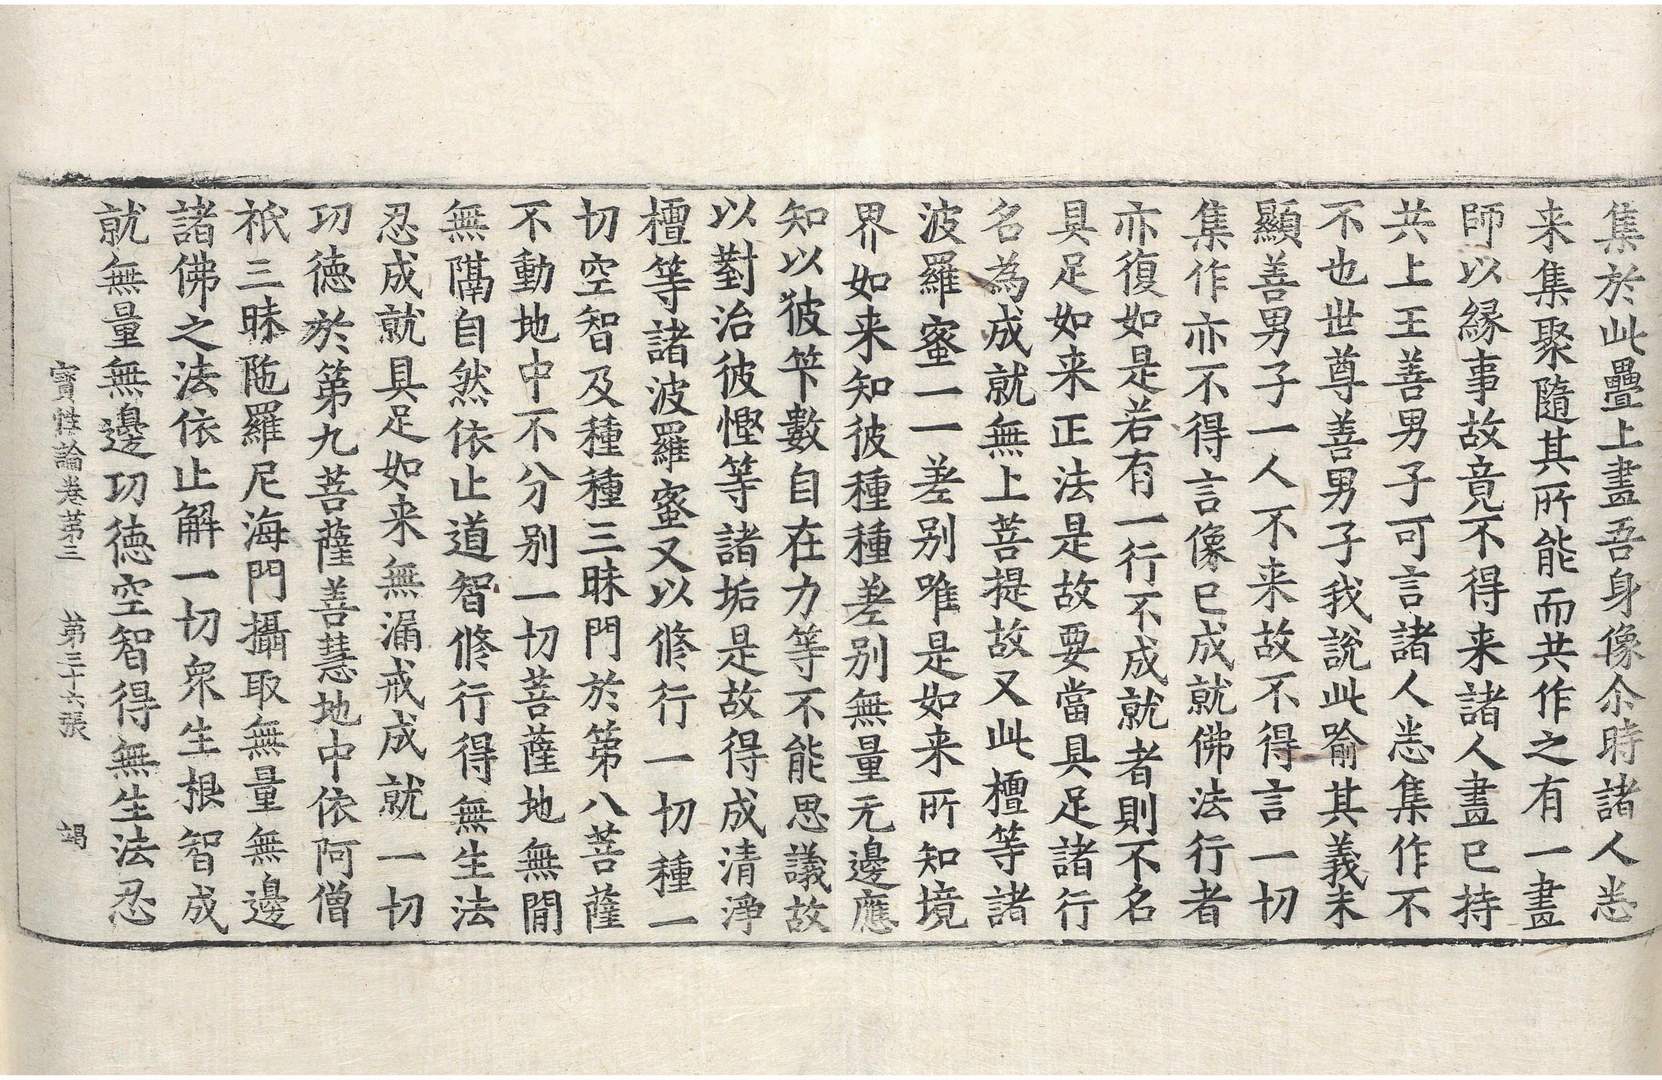 集於此疊上畫吾身像尒時諸人悉
来集聚隨其所能而共作之有一畫
師以縁事故竟不得来諸人畫已持
共上王善男子可言諸人悉集作不
不也世尊善男子我說此喻其義未
顯善男子一人不来故不得言一切
集作亦不得言像已成就佛法行者
亦復如是若有一行不成就者則不名
具足如来正法是故要當具足諸行
名為成就無上菩提故又此檀等諸
波羅蜜一一差别唯是如来所知境
界如来知彼種種差别無量无邊應
知以彼筭數自在力等不能思議故
以對治彼慳等諸垢是故得成清淨
檀等諸波羅蜜又以修行一切種一
切空智及種種三昧門於第八菩薩
不動地中不分别一切菩薩地無閒
無隔自然依止道智修行得無生法
忍成就具足如来無漏戒成就一切
功徳於第九菩薩善慧地中依阿僧
祇三昧陁羅尼海門攝取無量無邊
諸佛之法依止解一切衆生根智成
就無量無邊功徳空智得無生法忍
寳性論卷第三 第三十六張 竭